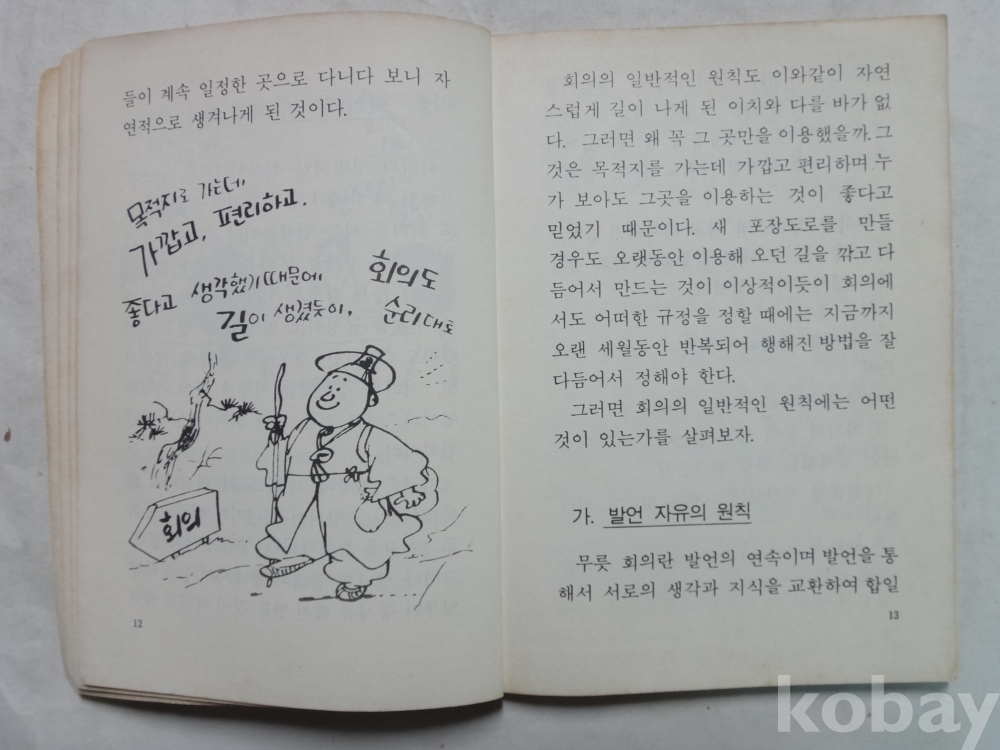 들이 계속 일정한 곳으로 다니다 보니 자
연적으로 생겨나게 된 것이다.
목적지로 가는데
가깝고, 편리하고.
좋다고 생각했기때문에
길이 생겼듯이,
회의도
순리대로
회의
12
회의의 일반적인 원칙도 이와같이 자연
스럽게 길이 나게 된 이치와 다를 바가 없
다. 그러면 왜 꼭 그 곳만을 이용했을까. 그
것은 목적지를 가는데 가깝고 편리하며 누
가 보아도 그곳을 이용하는 것이 좋다고
믿었기 때문이다. 새 포장도로를 만들
경우도 오랫동안 이용해 오던 길을 깎고 다
듬어서 만드는 것이 이상적이듯이 회의에
서도 어떠한 규정을 정할 때에는 지금까지
오랜 세월동안 반복되어 행해진 방법을 잘
다듬어서 정해야 한다.
그러면 회의의 일반적인 원칙에는 어떤
것이 있는가를 살펴보자.
가. 발언 자유의 원칙
무릇 회의란 발언의 연속이며 발언을 통
해서 서로의 생각과 지식을 교환하여 합일
13
kobay